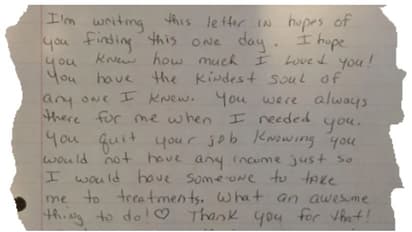 I'm writing this letter in hopes of
you finding this one day. I hope
you knew how much I loved you!
You have the kindest soul of
anyone I knew. You were always
there for me when I needed you.
You quit your job knowing you
would not have any income just so
I would have someone to take
me to treatments. What an awesome
thing to do!♡ Thank you for that!